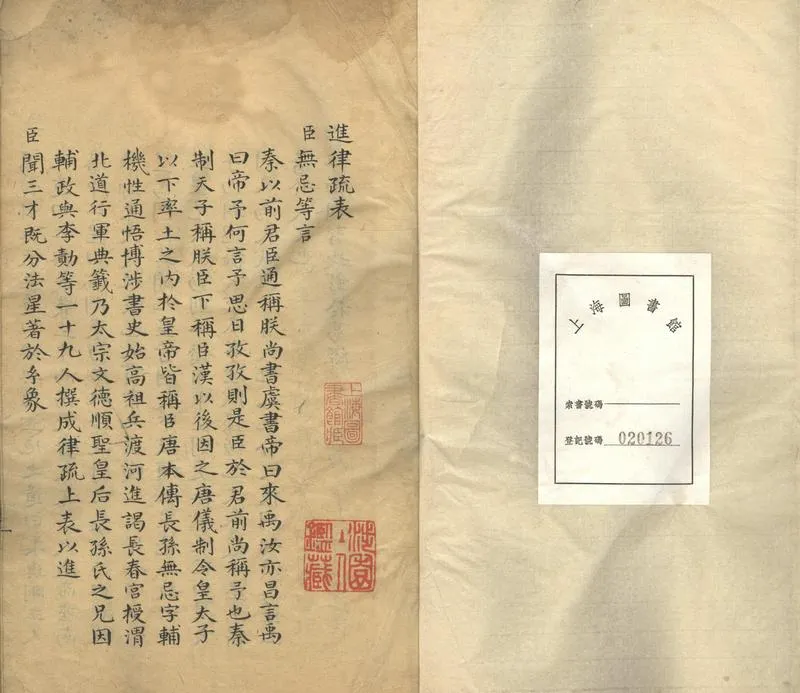 上海圖書館
索書號碼
登記號碼 020126
進律疏表
臣無忌等言
秦以前君臣通稱朕尚書虞書帝曰來禹汝亦昌言禹
曰帝予何言予思日孜孜則是臣於君前尚稱予也秦
制天子稱朕臣下稱臣漢以後因之唐儀制令皇太子
以下率土之內於皇帝皆稱臣唐本傳長孫無忌字輔
機性通悟博涉書史始高祖兵渡河進謁長春宮授渭
北道行軍典籤乃太宗文德順聖皇后長孫氏之兄因
輔政與李勣等一十九人撰成律疏上表以進
臣聞三才既分法星著於玄象
上海圖書館藏
涉園主人鑑藏